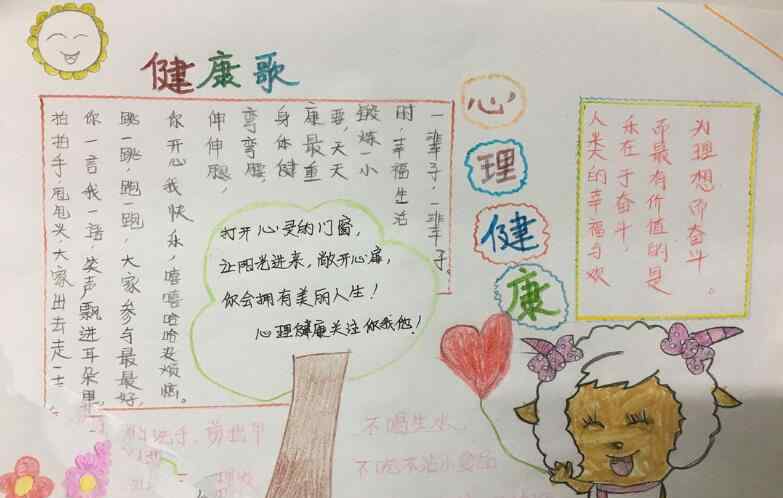 健康歌
拍拍手,甩甩头,大家出去走一走
你一言我一语,笑声飘进耳朵里
跳一跳,跑一跑,大家参与最最好,
你开心我快乐,嘻嘻哈哈没烦恼。
伸伸腿,
弯弯腰,
身体健
康最重
要,天天
锻炼一小
时,幸福生活
一辈子,一辈子。
打开心灵的门窗,
让阳光进来,敞开心扉,
你会拥有美丽人生!
心理健康关注你我他!
心理健康
人类的幸福与欢
乐在于奋斗,
而最有价值的是
为理想而奋斗。
洗手,剪指甲
不喝生水,
不吃不洁小食品